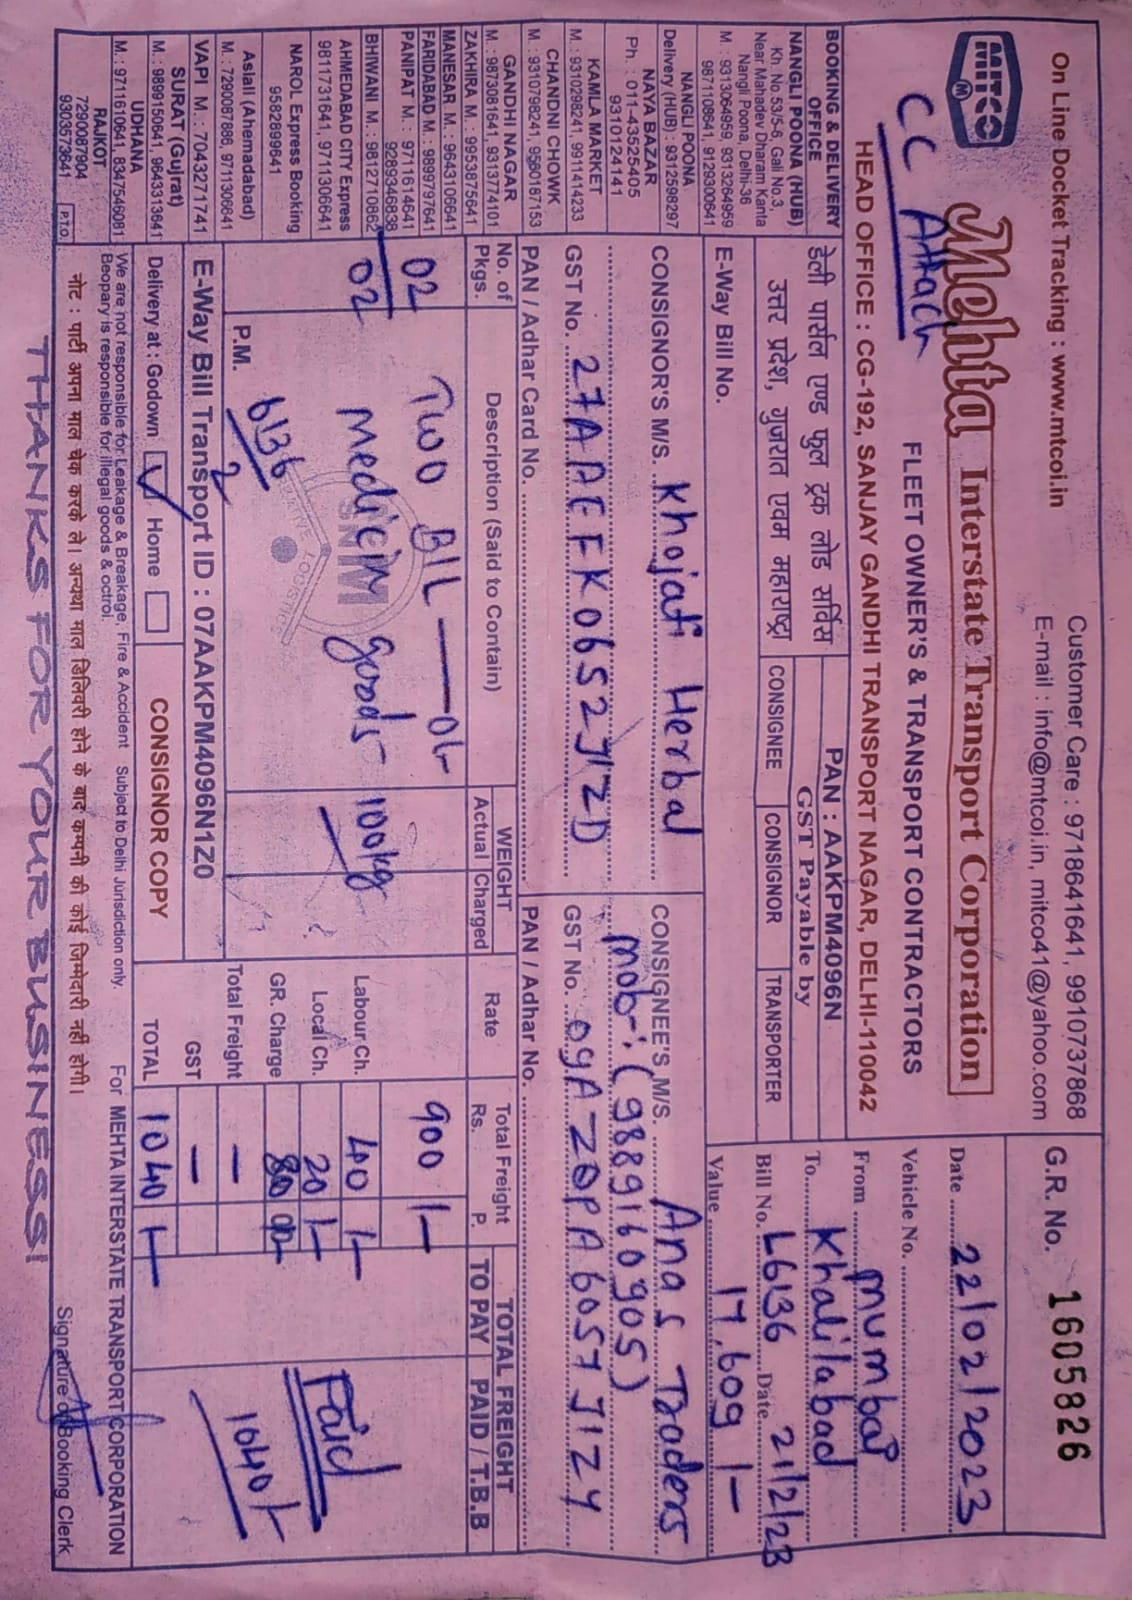 On Line Docket Tracking : www.mtcoi.in
Customer Care : 9718641641, 9910737868
E-mail : info@mtcoi.in, mitco41@yahoo.com
MITCO
M
Mehta Interstate Transport Corporation
CC Attach
FLEET OWNER'S & TRANSPORT CONTRACTORS
HEAD OFFICE : CG-192, SANJAY GANDHI TRANSPORT NAGAR, DELHI-110042
G.R. No. 1605826
Date 22/02/2023
Vehicle No.
From Mumbai
To Khalilabad
Bill No. L6136 Date 21/2/23
Value 17,609/-
BOOKING & DELIVERY OFFICE
NANGLI POONA (HUB)
Kh. No 53/5-6, Gali No.3,
Near Mahadev Dharam Kanta
Nangli Poona, Delhi-36
M. : 9313064959, 9313264959
9871108641, 9129300641
NANGLI POONA
Delivery (HUB) : 9312598297
NAYA BAZAR
Ph. : 011-43525405
9310124141
KAMLA MARKET
M. : 9310298241, 9911414233
CHANDNI CHOWK
M. : 9310798241, 9580187153
GANDHI NAGAR
M. : 9873081641, 9313774101
ZAKHIRA M. : 9953875641
MANESAR M. : 9643106641
FARIDABAD M. : 9899797641
PANIPAT M. : 9711614641
9289346838
BHIWANI M. : 9812710862
AHMEDABAD CITY Express
9811731641, 9711306641
NAROL Express Booking
9582899641
Aslali (Ahemadabad)
M. : 7290087886, 9711306641
VAPI M. : 7043271741
SURAT (Gujrat)
M. : 9899150641, 9643313641
UDHANA
M. : 9711610641, 8347546081
RAJKOT
7290087904
9903573641
P.T.O.
डेली पार्सल एण्ड फुल ट्रक लोड सर्विस
उत्तर प्रदेश, गुजरात एवम महाराष्ट्रा
PAN : AAKPM4096N
GST Payable by
CONSIGNEE CONSIGNOR TRANSPORTER
E-Way Bill No.
CONSIGNOR'S M/S. Khojati Herbal
GST No. 27AAEFK0652J1ZD
PAN / Adhar Card No.
CONSIGNEE'S M/S. Anas Traders
Mob-: (9889160905)
GST No. 09AZOPA6057J1ZY
PAN / Adhar No.
No. of Pkgs. Description (Said to Contain) WEIGHT Actual Charged Rate Total Freight Rs. P. TOTAL FREIGHT TO PAY PAID / T.B.B
02 Two BIL — 900/-
02 Medicin goods 100kg
Labour Ch. 40/-
Local Ch. 20/-
GR. Charge 80
Total Freight —
GST —
TOTAL 1040/-
Paid
1040/-
P.M. 6136
2
E-Way Bill Transport ID : 07AAKPM4096N1Z0
Delivery at : Godown Home
CONSIGNOR COPY
We are not responsible for Leakage & Breakage, Fire & Accident Subject to Delhi Jurisdiction only.
Beopary is responsible for illegal goods & octroi.
For MEHTA INTERSTATE TRANSPORT CORPORATION
नोट : पार्टी अपना माल चेक करके ले। अन्यथा माल डिलिवरी होने के बाद कम्पनी की कोई जिम्मेदारी नही होगी।
Signature of Booking Clerk
THANKS FOR YOUR BUSINESS!